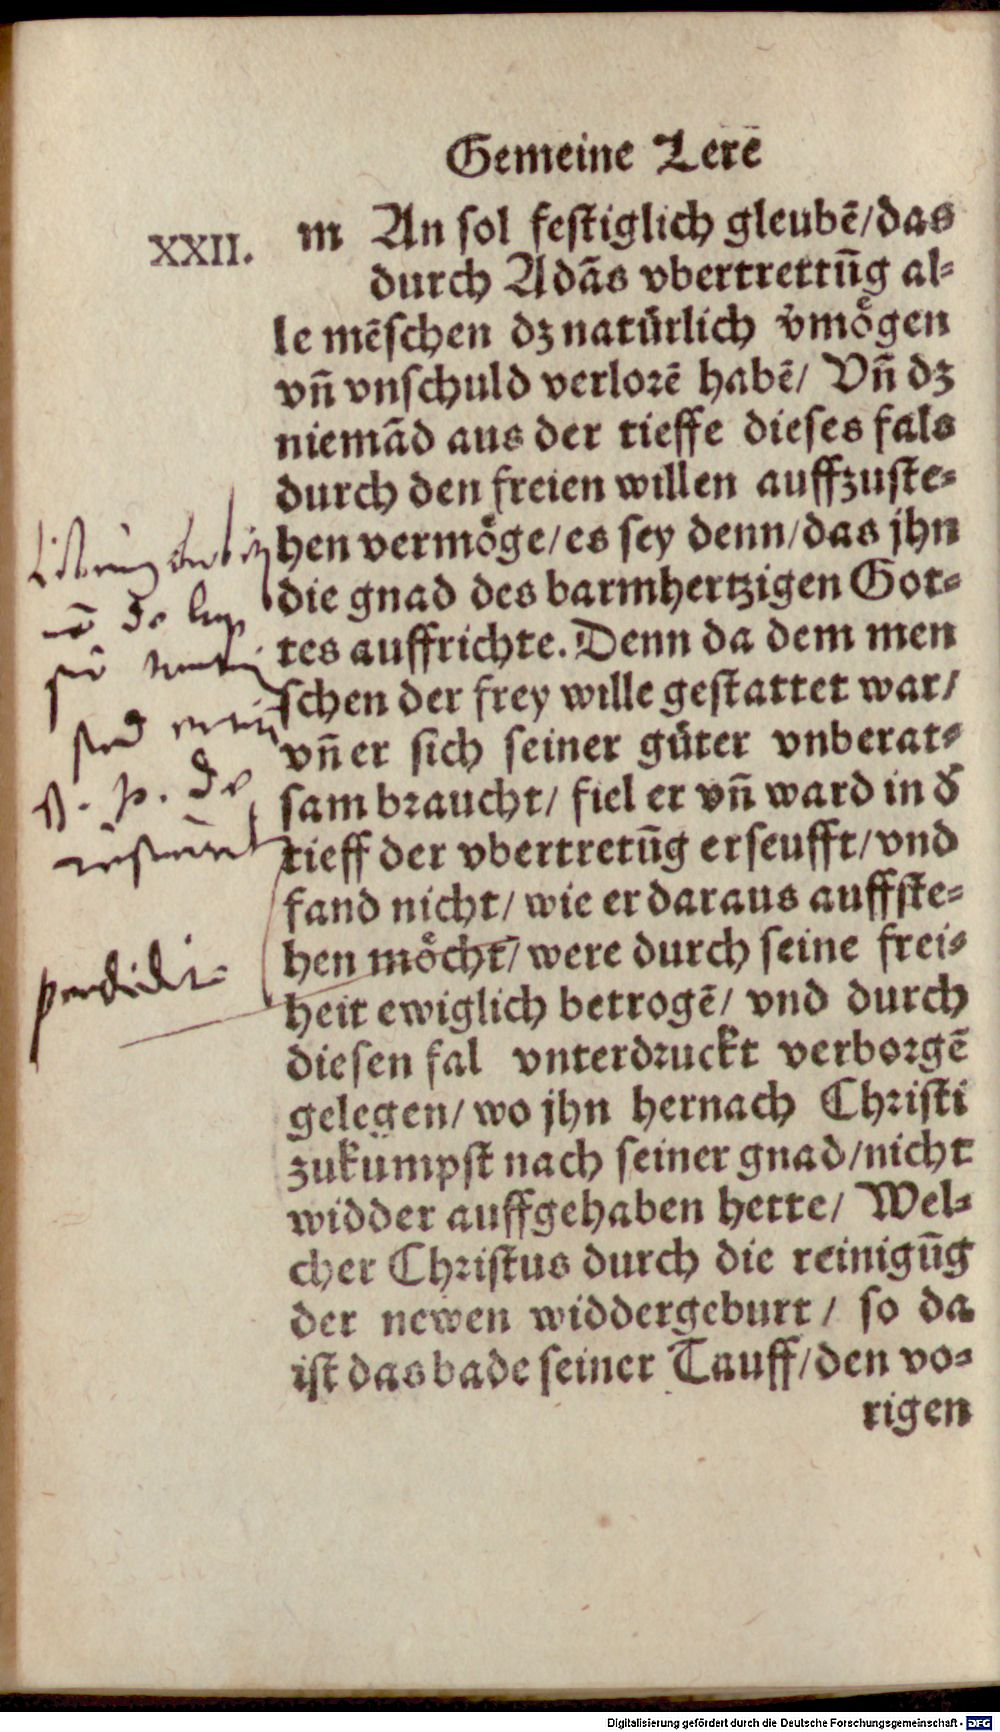 Gemeine Lerē
XXII.
m An sol festiglich gleubē/das
durch Adãs vbertrettũg al⸗
le mēschen dz natürlich v̄mögen
vñ vnschuld verlorē habē/ Vñ dz
niemãd aus der tieffe dieses fals
durch den freien willen auffzuste⸗
hen vermöge/es sey denn/das jhn
die gnad des barmhertzigen Got⸗
tes auffrichte. Denn da dem men
schen der frey wille gestattet war/
vñ er sich seiner güter vnberat⸗
sam braucht/ fiel er vñ ward in d̄
tieff der vbertretũg erseufft/vnd
fand nicht/ wie er daraus auffste⸗
hen möcht/ were durch seine frei⸗
heit ewiglich betrogē/ vnd durch
diesen fal vnterdruckt verborgē
gelegen/ wo jhn hernach Christi
zukümpst nach seiner gnad/nicht
widder auffgehaben hette/ Wel⸗
cher Christus durch die reinigũg
der newen widdergeburt/ so da
ist das bade seiner Tauff/den vo⸗
rigen
perdidit
Digitalisierung gefördert durch die Deutsche Forschungsgemeinschaft - DFG